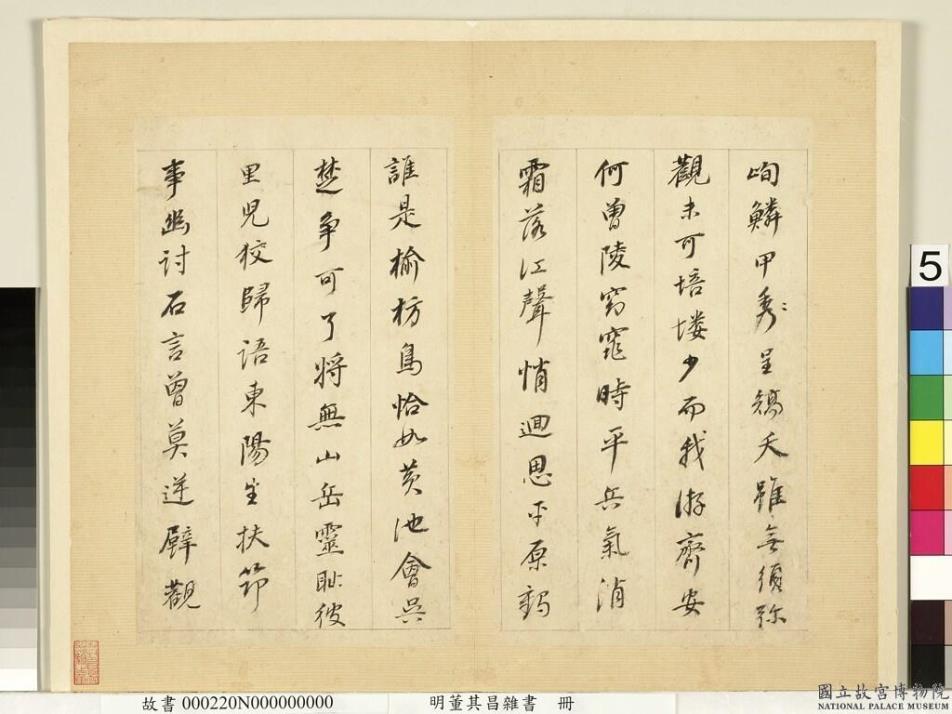 峋鱗甲秀〻呈矯夭雖無須弥
觀未可培塿少而我游齊安
何曾陵窈窕時平兵氣消
霜落江聲悄迴思平原
誰是榆枋鳥恰如黃池會吳
楚爭可了將無山岳靈恥彼
里兒狡歸語東陽生扶節
事幽討石言曾莫逆壁觀
5
故書 000220N000000000
明董其昌雜書 冊
國立故宮博物院
NATIONAL PALACE MUSEUM